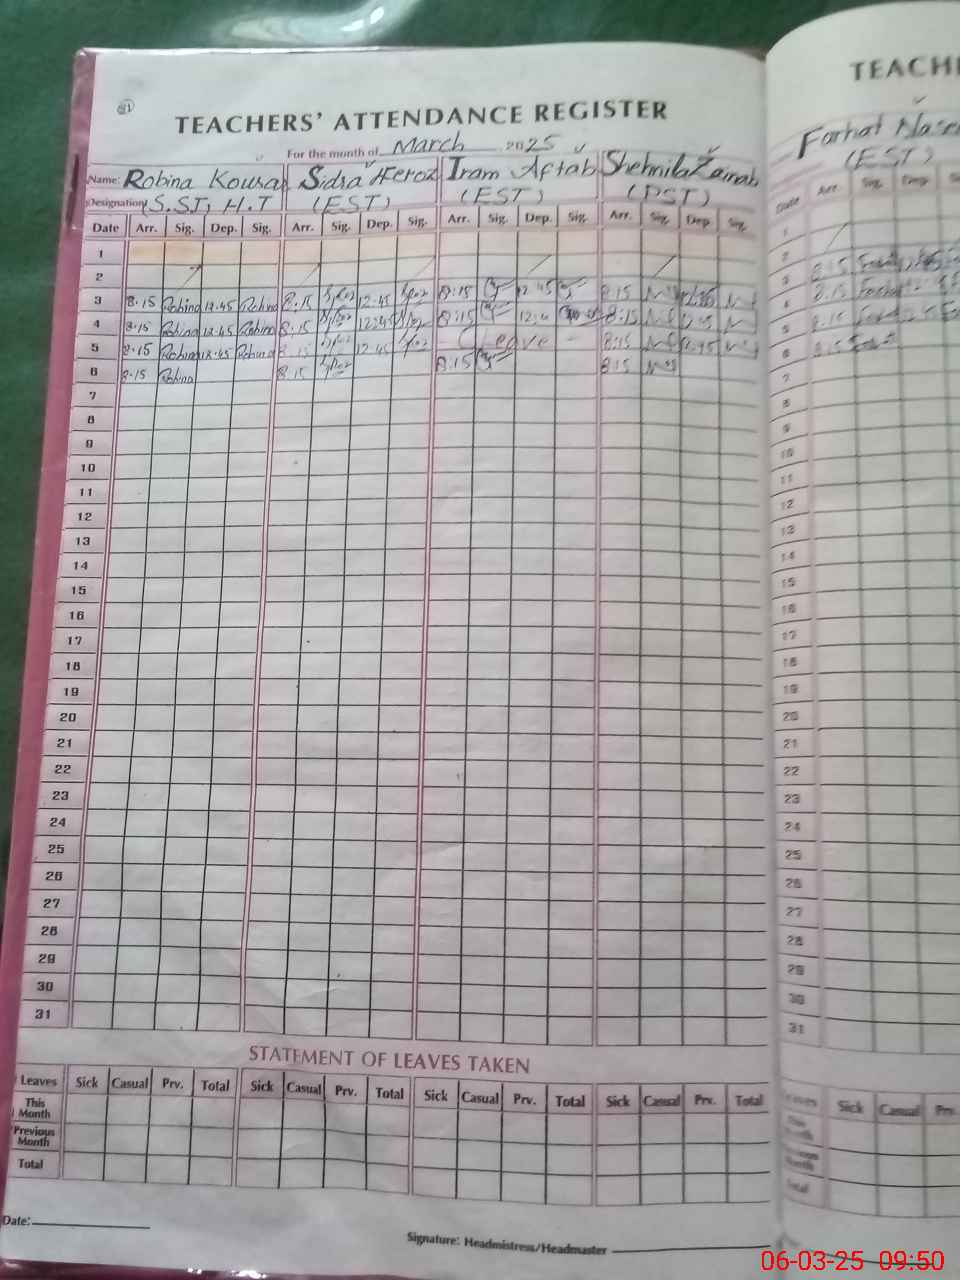 51
TEACHERS' ATTENDANCE REGISTER
For the month of March 2025
Name: Robina Kousar Sidra Feroz Iram Aftab Shehnila Zainab
Designation (S.ST) H.T (EST) (EST) (PST)
Date Arr. Sig. Dep. Sig. Arr. Sig. Dep. Sig. Arr. Sig. Dep. Sig. Arr. Sig. Dep. Sig.
1
2
3 8.15 Robina 12.45 Robina 8.15 12.45 8:15 12:45 8:15
4 8.15 Robina 12.45 Robina 8.15 12:45 8:15 8:15 12:45
5 8.15 Robina 12.45 Robina 8.15 12.45 - Leave - 8:15 12:45
6 8.15 Robina 8.15 8:15 8:15
7
8
9
10
11
12
13
14
15
16
17
18
19
20
21
22
23
24
25
26
27
28
29
30
31
STATEMENT OF LEAVES TAKEN
Leaves Sick Casual Prv. Total Sick Casual Prv. Total Sick Casual Prv. Total Sick Casual Prv. Total
This Month
Previous Month
Total
Date:
Signature: Headmistress/Headmaster
TEACH
Farhat Nase
(EST)
Date Arr. Sig. Dep.
1
2
3 8:15
4 8.15
5 8.15
6 8:15
7
8
9
10
11
12
13
14
15
16
17
18
19
20
21
22
23
24
25
26
27
28
29
30
31
Leaves Sick Casual Prv.
This Month
Previous Month
Total
06-03-25 09:50